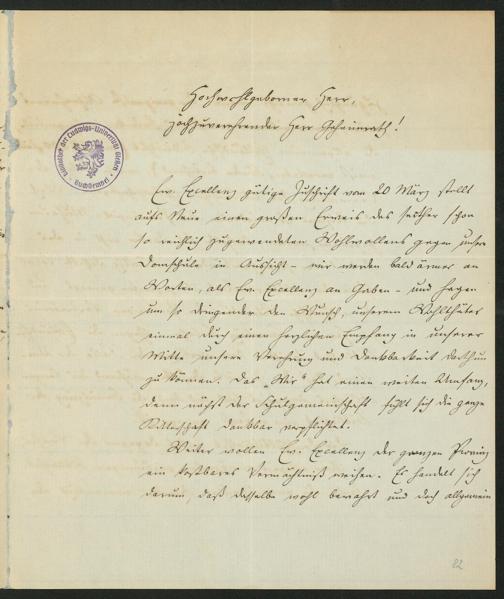 Hochwohlgeborner Herr,
Hochzuverehrender Herr Geheimrath!
Bibliothek der Ludwigs-Universität Giessen
Buchstempel
Ew. Excellenz gütige Zuschrift vom 20 März stellt
aufs Neue einen großen Erweis des seither schon
so reichlich zugewendeten Wohlwollens gegen unsere
Domschule in Aussicht - wir werden bald ärmer an
Worten, als Ew. Excellenz an Gaben - und hegen
um so dringender den Wunsch, unserem Wohlthäter
einmal durch einen herzlichen Empfang in unserer
Mitte unsere Verehrung und Dankbarkeit darthun
zu können. Das "Wir" hat einen weiten Umfang,
denn nächst der Schulgemeinschaft fühlt sich die ganze
Ritterschaft dankbar verpflichtet.
Weiter wollen Ew. Excellenz der ganzen Provinz
ein kostbares Vermächtniß weihen. Es handelt sich
darum, daß dasselbe wohl bewahrt und doch allgemein
82